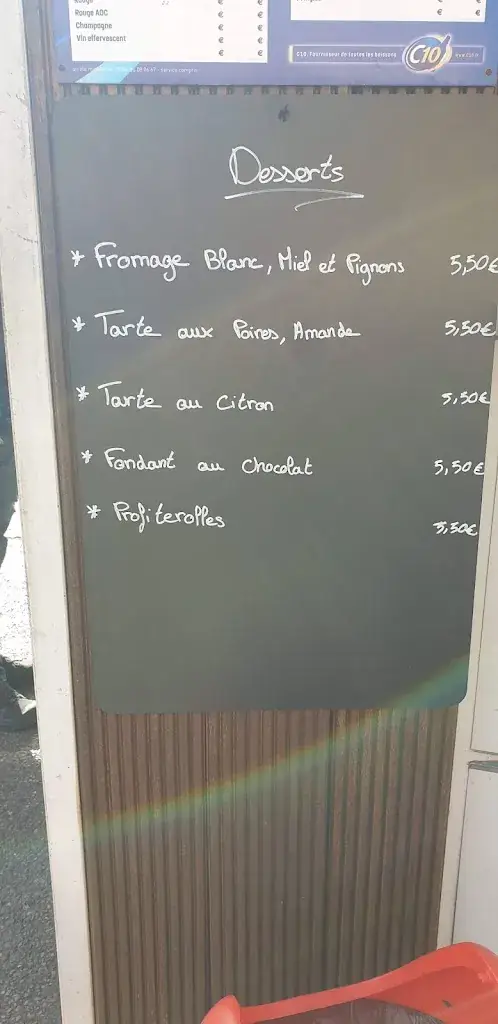 Rouge AOC € €
Champagne € €
Vin effervescent € €
€ €
€
€
C10, Fournisseur de toutes les boissons C10
Desserts
* Fromage Blanc, Miel et Pignons 5,50€
* Tarte aux Poires, Amande 5,50€
* Tarte au Citron 5,50€
* Fondant au Chocolat 5,50€
* Profiterolles 5,50€